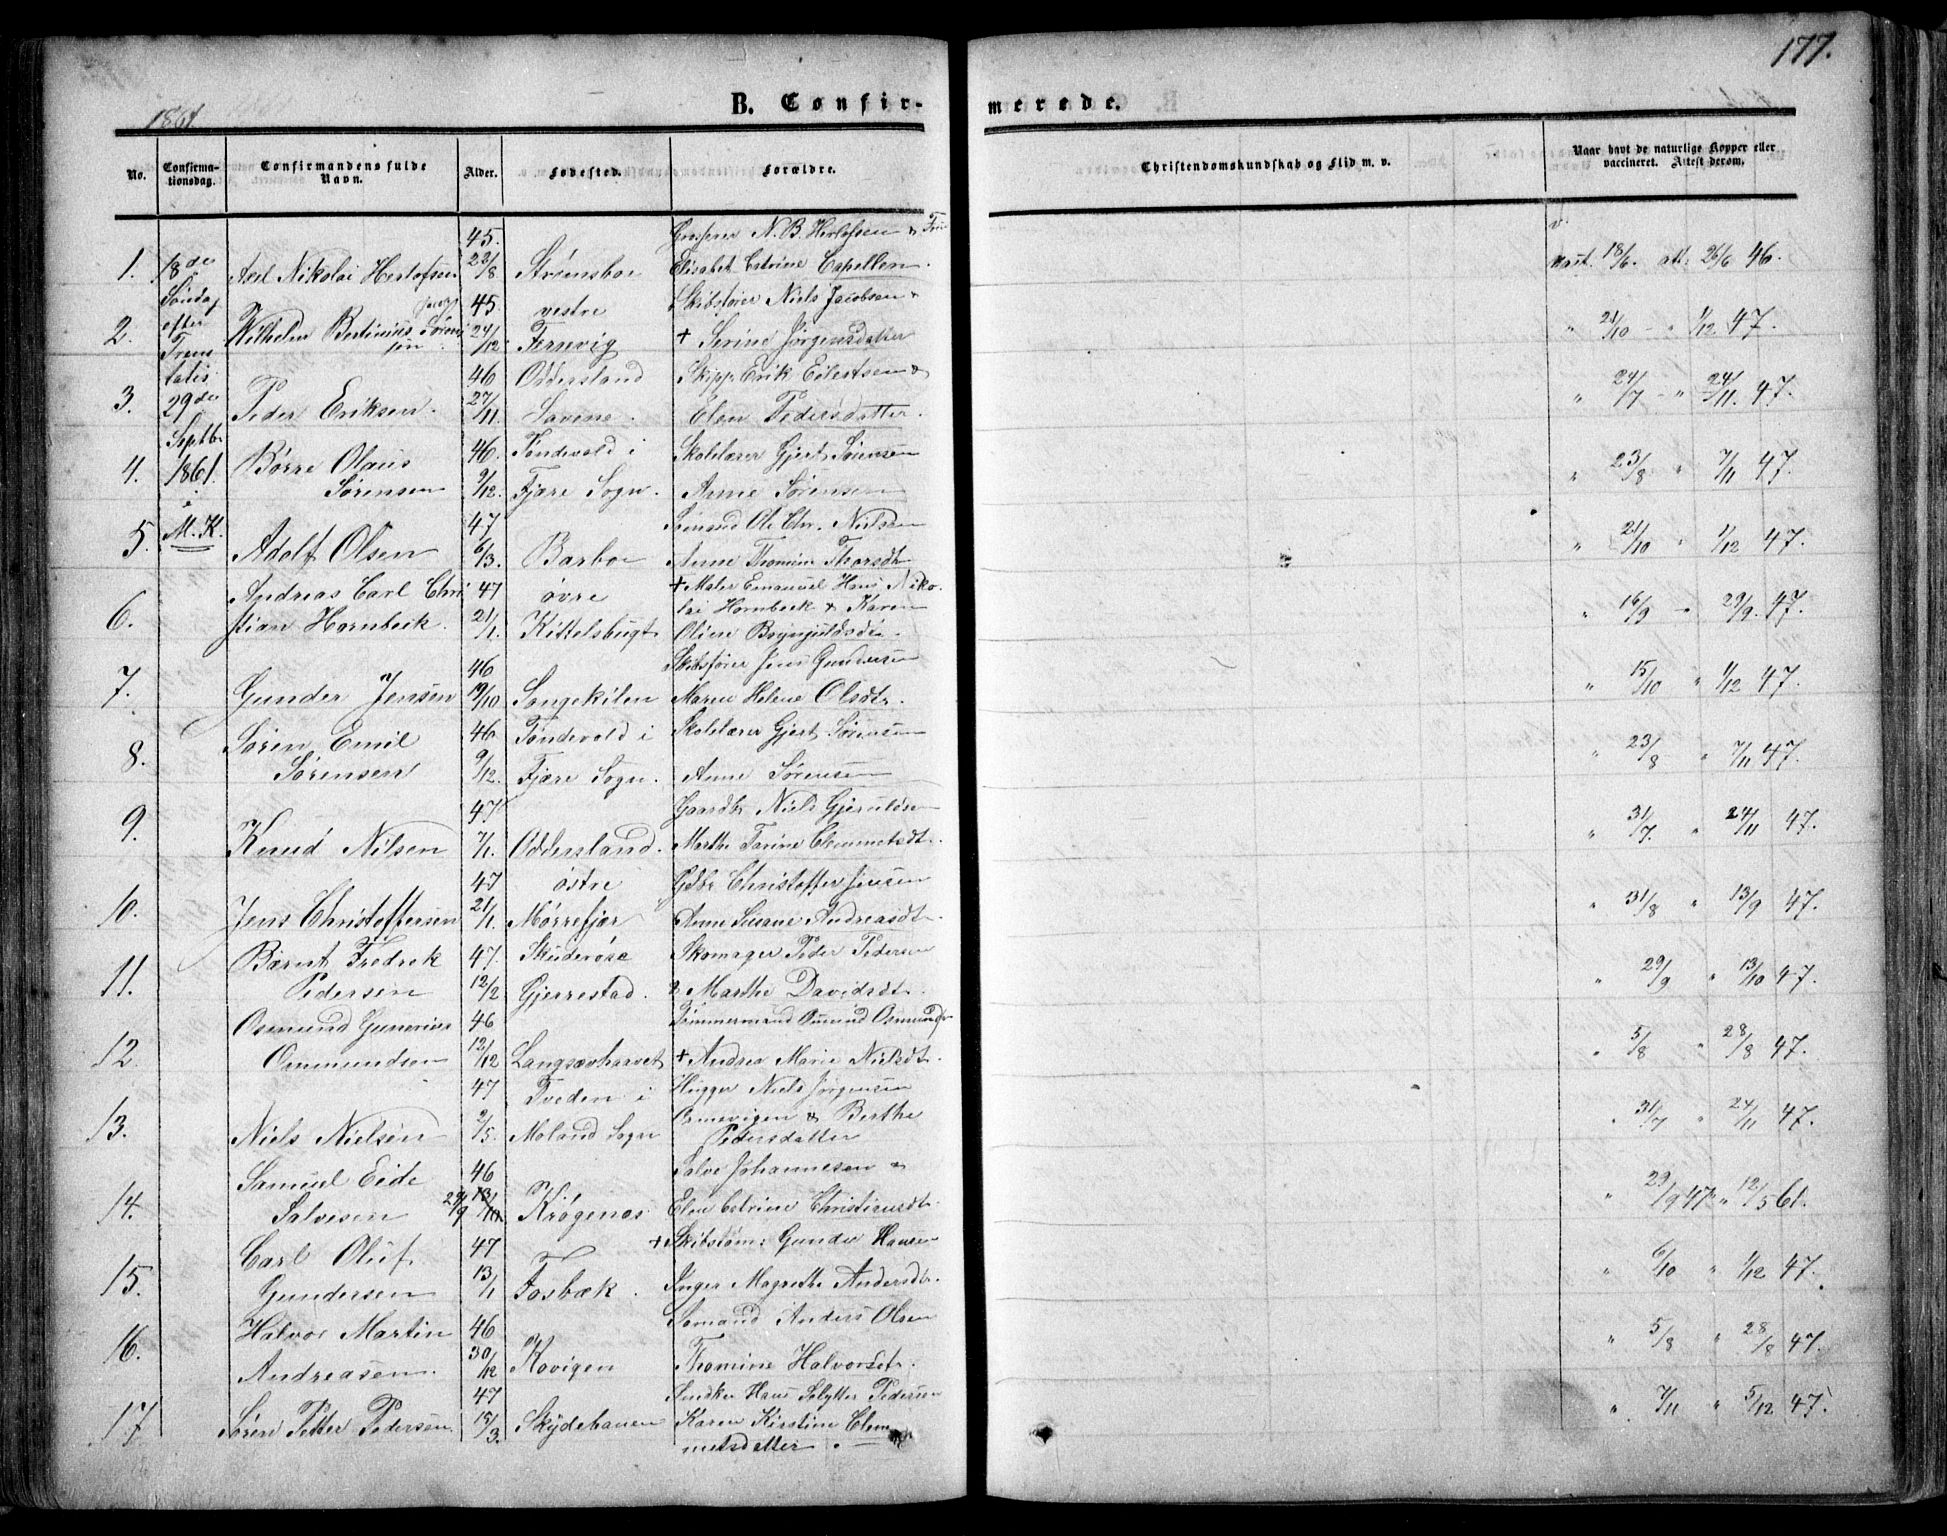 177.
1861.
B. Confir-merede.
No.
Confirma-tionsdag.
Confirmandens fulde Navn.
Alder.
Fødested.
Forældre.
Christendomskundskab og Flid m. v.
Naar havt de naturlige Kopper eller vaccineret. Attest derom.
18de Søndag efter Trinitatis 29de Septbr 1861 i M. K.
1. Axel Nikolai Herlofsen 45. 23/8 Strømsboe N. B. Herlofsen & Fru Elisabet Catrine Capellen. vact. 18/6. att: 26/6 46.
2. Wilhelm Bertinius Sørensen 45 24/12 vestre Terrevig Skibsfører Niels Jacobsen & + Serine Jørgensdatter " 21/10 - " 1/12 47.
3. Peder Eriksen. 46 27/11 Oddersland Skipp. Erik Eilertsen & Elen Pedersdatter. " 24/7 - " 24/11. 47.
4. Børre Olaus Sørensen 46. 9/12. Tøndevold i Fjære Sogn. Skolelærer Gjert Sørensen Anne Sørensen " 23/8 " 7/11 47.
5. Adolf Olsen 47 6/3. Barboe Sømand Ole Chr. Nielsen Anne Thomine Thorsdt " 21/10 " 1/12 47.
6. Andreas Carl Christian Hornbeck. 47 21/1. øvre Kittelsbugt + Maler Emanuel Hans Nikolai Hornbeck & Karen Oline " 16/9 - 29/9. 47.
7. Gunder Jensen 46 19/10 Songekilen Skibsfører Jens Gundersen Maren Helene Olsdtr. " 15/10 " 1/12 47.
8. Søren Emil Sørensen 46 9/12. Tøndevold i Fjære Sogn. Skolelærer Gjert Sørensen Anne Sørensen " 23/8 " 7/11 47.
9. Knud Nilsen 47 7/1. Oddersland. Gaardbr Niels Gjeruldsen Marthe Tarine Clemmetsdt. " 31/7. " 24/11 47.
10. Jens Christoffersen 47 21/1. østre Mørrefjær Gdbr Christoffer Jensen Anne Susane Andreasdt. " 31/8 " 13/9 47.
11. Bærnt Fredrek Pedersen 47. 12/2 Gjerrestad. Skomager Peder Pedersen & Marthe Davidsdt. " 29/9 " 13/10 47.
12. Osmund Gunerius Ommundsen 46 12/12 Langsævhavet Tømmermand Osmund Osmundsen + Andrea Marie Nielsdt. " 5/8 " 28/8 47.
13. Niels Nielsen 47 2/5. Tveden i Moland Sogn Niels Jørgensen & Berthe Pedersdatter " 31/7 " 24/11 47.
14. Samuel Eide Salvesen 46 29/9 13/10. Krøgenæs Salve Johannesen & Elen Catrine Christiansdt. " 29/9 47 " 12/5 61.
15. Carl Oluf Gundersen 47 13/1 Fosbæk. + Skibstøm: Gunder Hansen Inger Magrethe Andersdtr " 6/10 " 1/12 47.
16. Halvor Martin Andreasen. 46 30/12 Kovigen Sømand Anders Olsen Thomine Halvorsdt. " 5/8 " 28/8 47.
17. Søren Petter Pedersen 47 15/3. Skydehauen Snedker Hans Pedersen Karen Kirstine Clemmetsdatter. " 7/11 " 5/12 47.